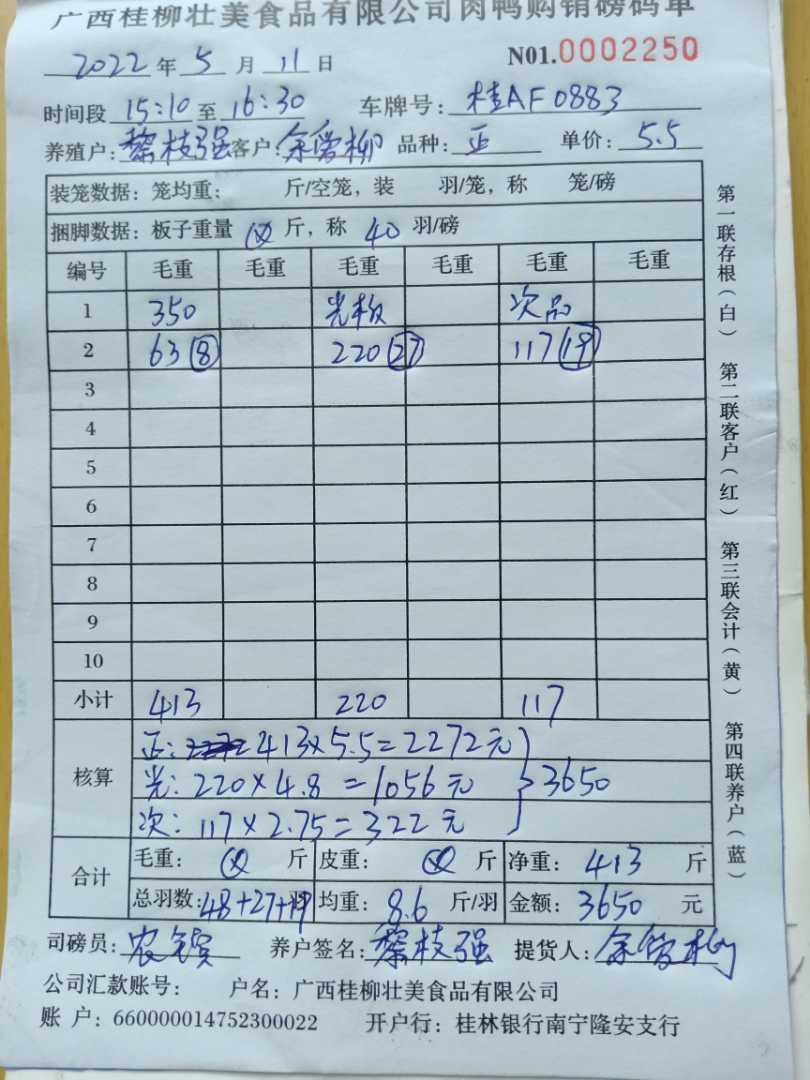 广西桂柳壮美食品有限公司肉鸭购销磅码单
2022 年 5 月 11 日 N01.0002250
时间段 15:10 至 16:30 车牌号: 桂AF0883
养殖户: 黎枝强 客户: 余曾柳 品种: 正 单价: 5.5
装笼数据: 笼均重: 斤/空笼, 装 羽/笼, 称 笼/磅
捆脚数据: 板子重量 斤, 称 40 羽/磅
编号 毛重 毛重 毛重 毛重 毛重 毛重
1 350 光板 次品
2 63 8 220 27 117 19
3
4
5
6
7
8
9
10
小计 413 220 117
核算
正: 413×5.5=2272元
光: 220×4.8=1056元 } 3650
次: 117×2.75=322元
合计
毛重: 斤 皮重: 斤 净重: 413 斤
总羽数: 48+27+19 羽 均重: 8.6 斤/羽 金额: 3650 元
司磅员: 养户签名: 黎枝强 提货人: 余曾柳
公司汇款账号: 户名: 广西桂柳壮美食品有限公司
账 户: 660000014752300022 开户行: 桂林银行南宁隆安支行
第一联存根(白) 第二联客户(红) 第三联会计(黄) 第四联养户(蓝)